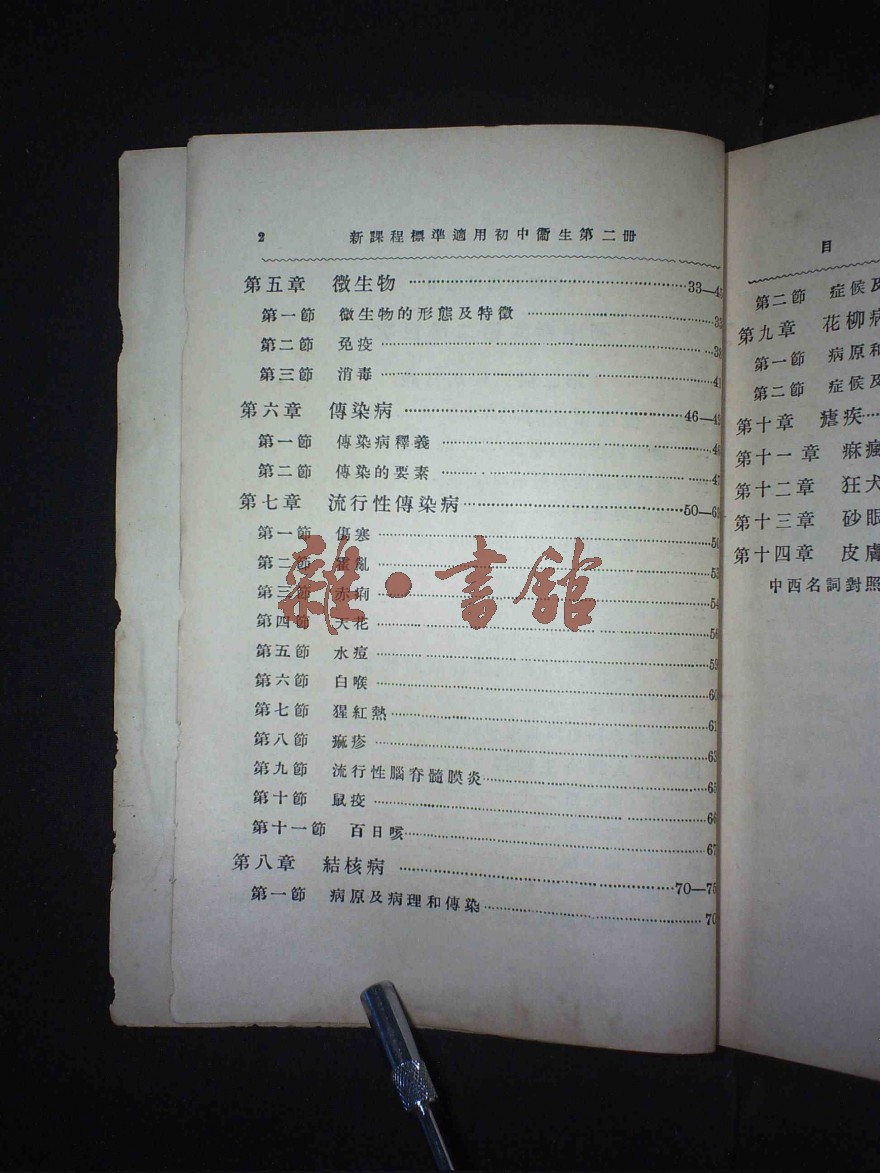 2 新課程標準適用初中衞生第二冊
第五章 微生物 33—4
第一節 微生物的形態及特徵 33
第二節 免疫 38
第三節 消毒 41
第六章 傳染病 46—49
第一節 傳染病釋義 46
第二節 傳染的要素 47
第七章 流行性傳染病 50—6
第一節 傷寒 50
第二節 霍亂 53
第三節 赤痢 54
第四節 天花 56
第五節 水痘 59
第六節 白喉 60
第七節 猩紅熱 61
第八節 痲疹 63
第九節 流行性腦脊髓膜炎 65
第十節 鼠疫 66
第十一節 百日咳 67
第八章 結核病 70—75
第一節 病原及病理和傳染 70
雜·書館
目
第二節 症候及
第九章 花柳病
第一節 病原和
第二節 症候及
第十章 瘧疾
第十一章 痲瘋
第十二章 狂犬
第十三章 砂眼
第十四章 皮膚
中西名詞對照